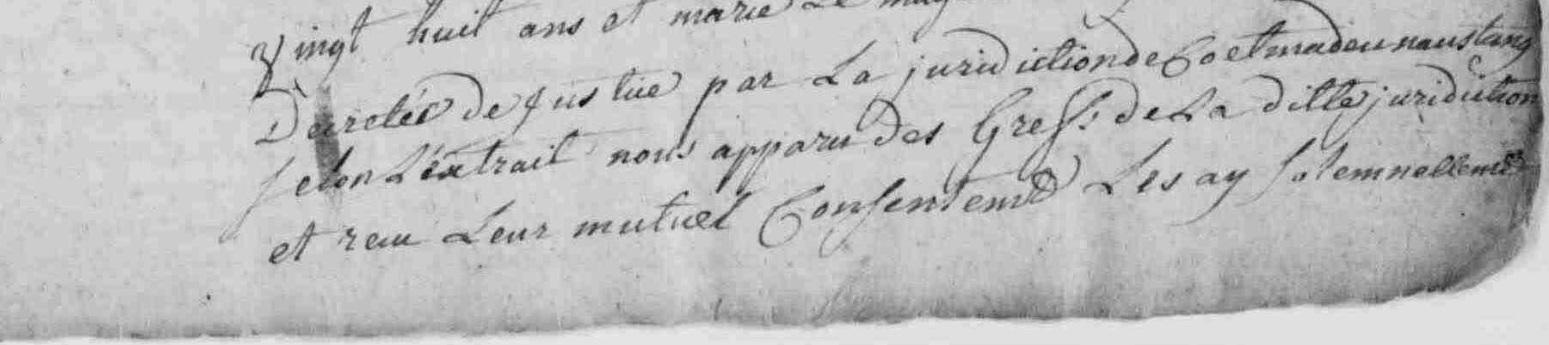 Vingt huit ans et marie Le
Decretée de justice par La juridiction de Coetmadeunaustang
selon L'extrait nous apparu des Greffs de La ditte juridiction
et recu Leur mutuel Consentemt Les ay solemnellemt